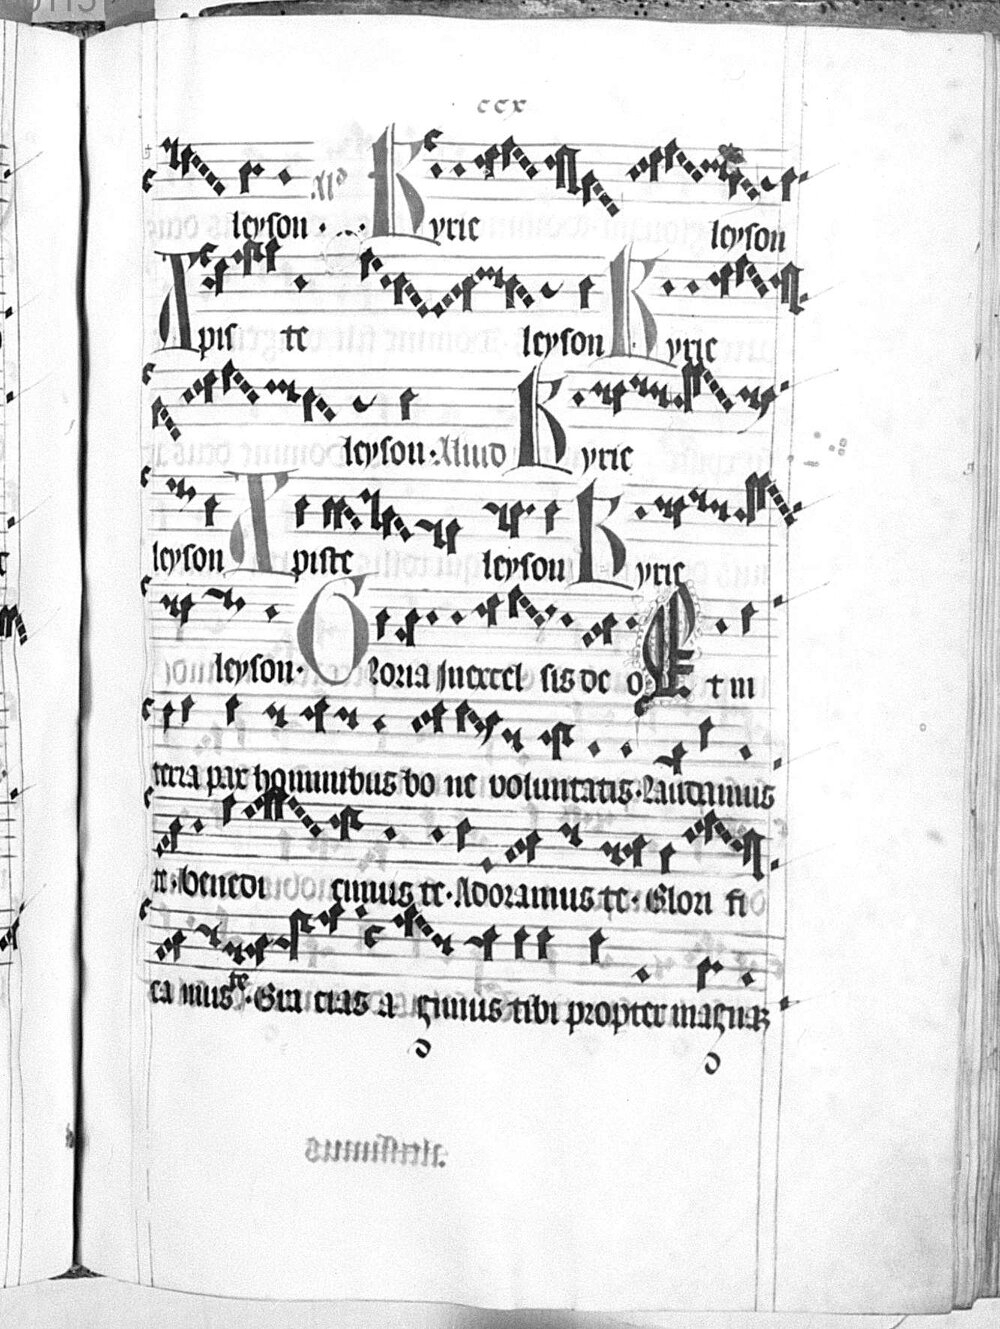 ccx
leyson · Kyrie leyson
Xpiste leyson Kyrie
leyson · Aliud Kyrie
leyson Xpiste leyson Kyrie
leyson · Gloria In excelsis deo Et in
terra pax hominibus bone voluntatis · Laudamus
te · benedicimus te · Adoramus te · Glorifi
camus te · Gracias agimus tibi propter magnaꝫ